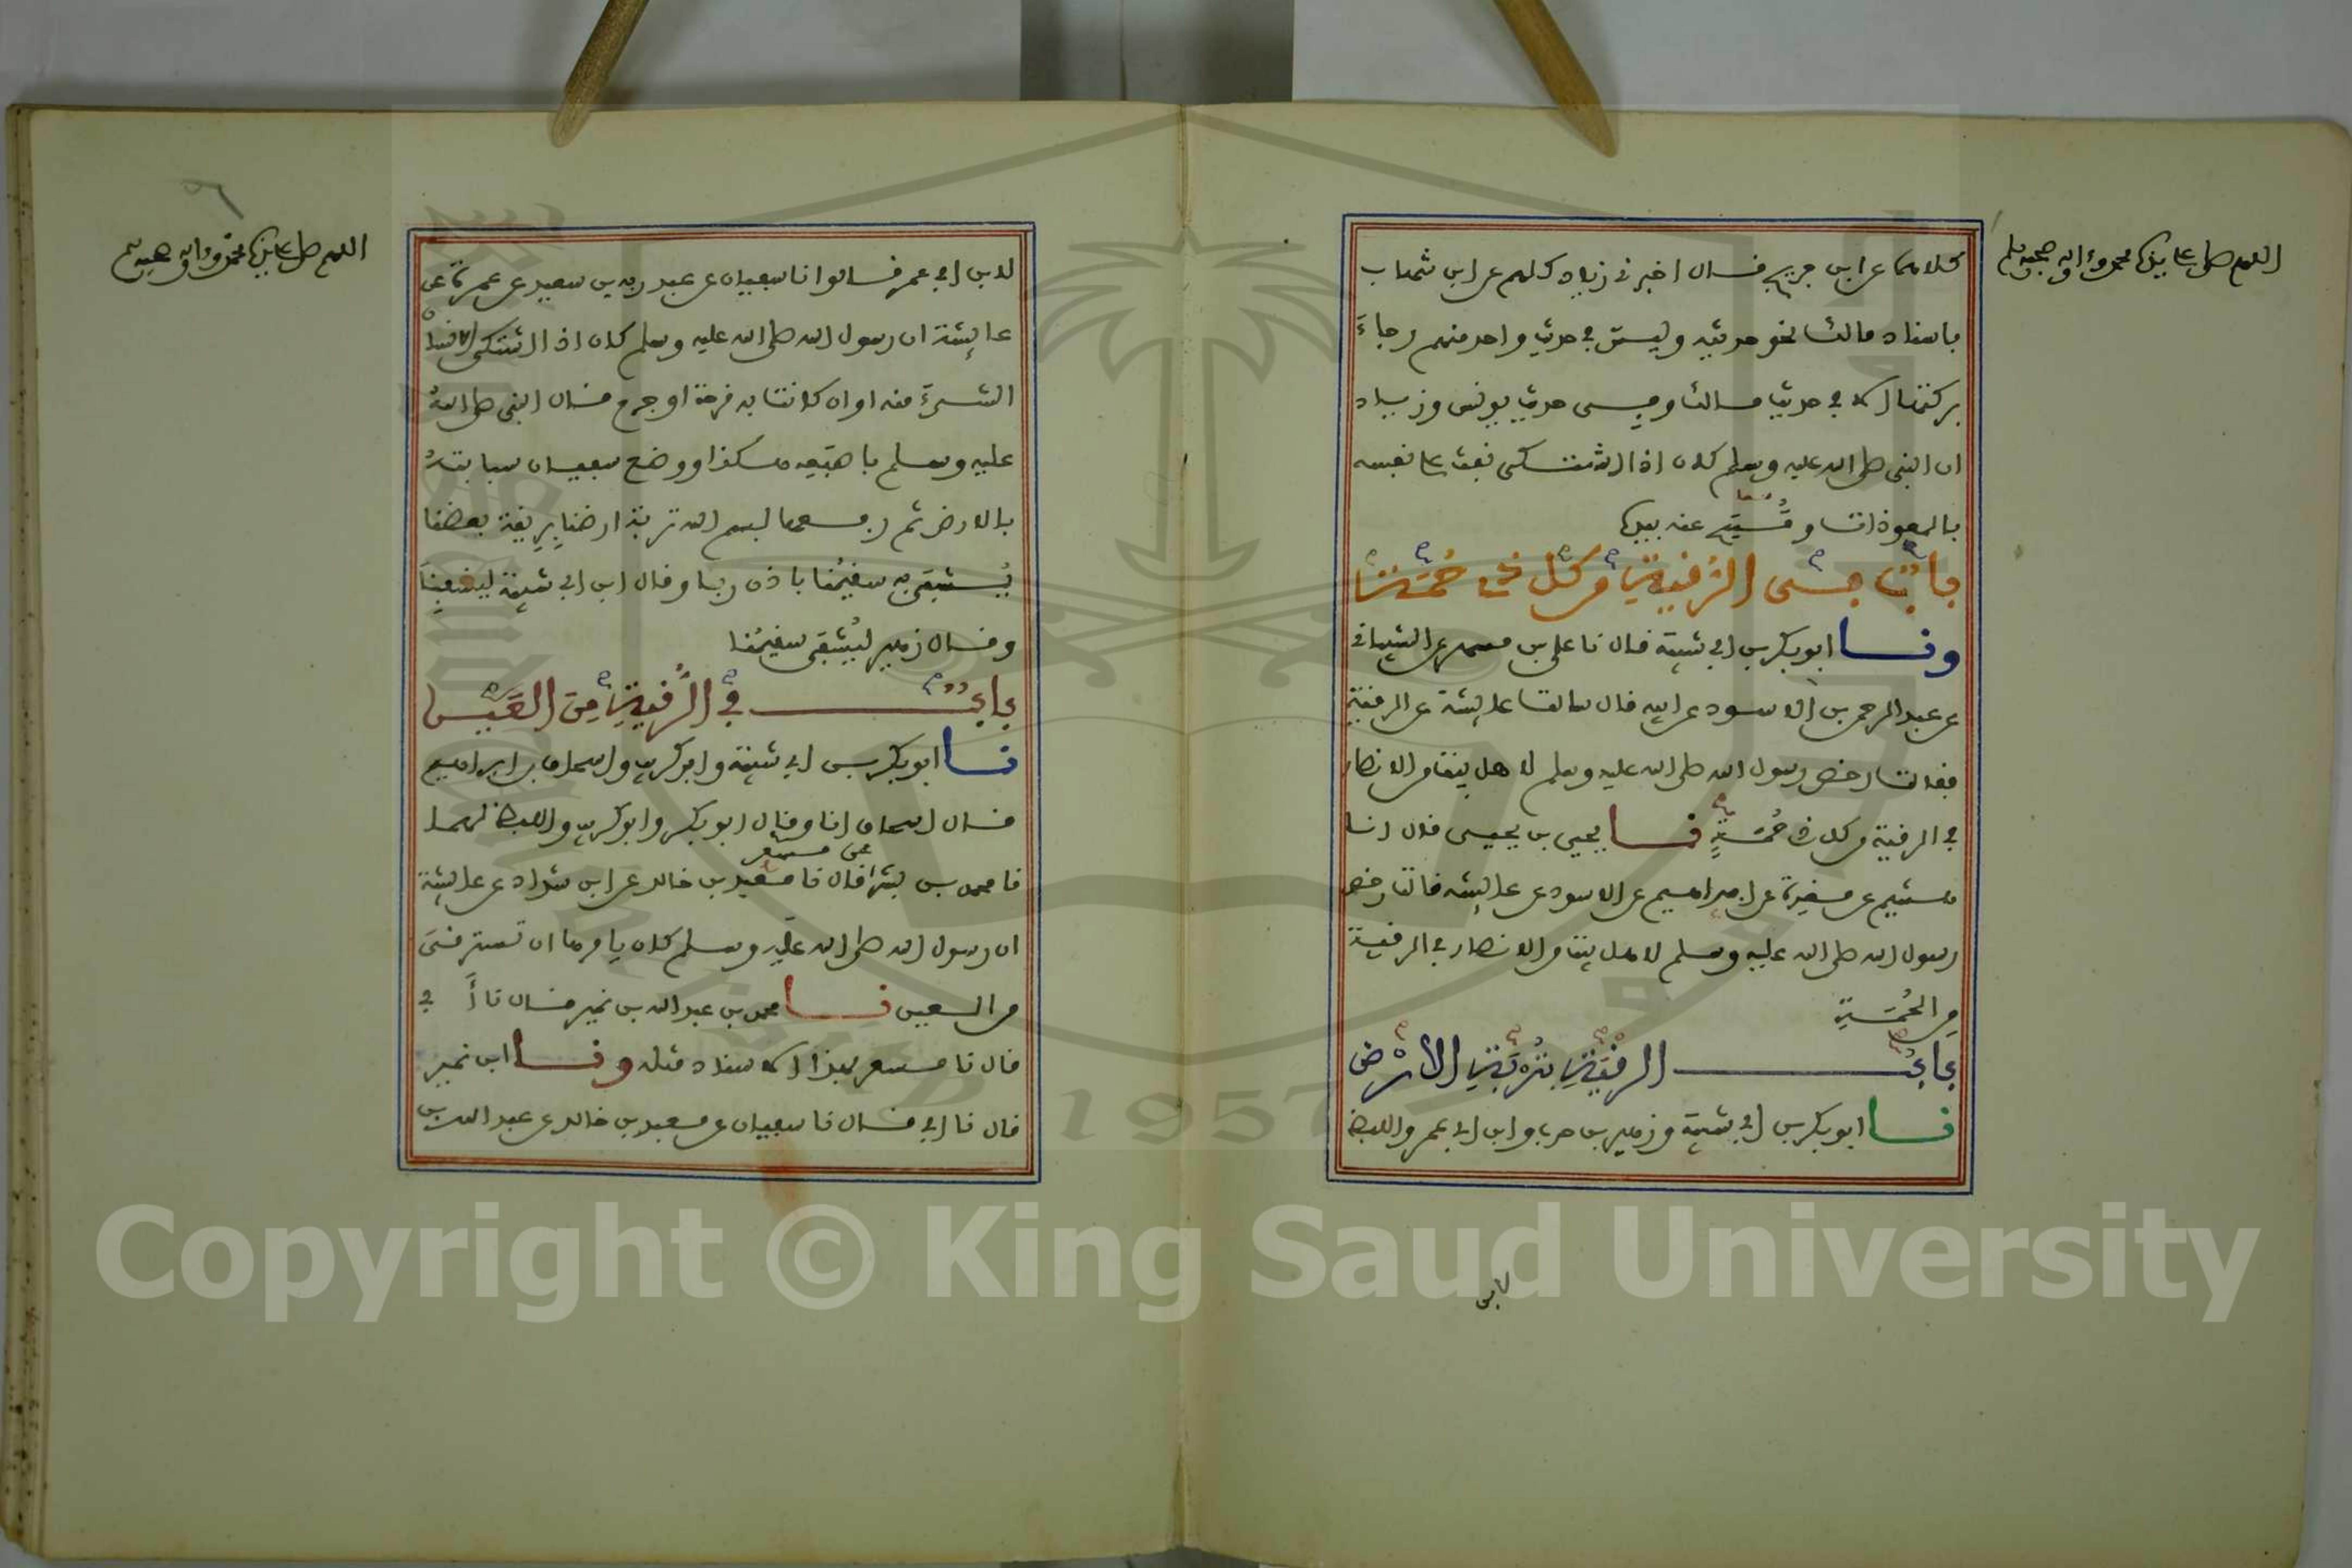 اللهم صل على سيدنا محمد وءاله وصحبه وسلم
كلاهما عن ابن جريج قال اخبرني زياد كلهم عن ابن شهاب
باسناد مالك نحو حديثه وليس في حديث واحد منهم رجاء
بركتها الا في حديث مالك وفي حديث يونس وزياد
ان النبي صلى الله عليه وسلم كان اذا اشتكى نفث على نفسه
بالمعوذات ومسح عنه بيده
باب في الرقية من كل ذي حمة
ونا ابو بكر بن ابي شيبة قال نا علي بن مسهر عن الشيباني
عن عبد الرحمن بن الاسود عن ابيه قال سالت عايشة عن الرقية
فقالت رخص رسول الله صلى الله عليه وسلم لاهل بيت من الانصار
في الرقية من كل ذي حمة نا يحيى بن يحيى قال انا
هشيم عن مغيرة عن ابراهيم عن الاسود عن عايشة قالت رخص
رسول الله صلى الله عليه وسلم لاهل بيت من الانصار في الرقية
من الحمة
باب الرقية بتربة الارض
نا ابو بكر بن ابي شيبة وزهير بن حرب وابن ابي عمر واللفظ
لابن
اللهم صل على سيدنا محمد وءاله وصحبه وسلم
لابن ابي عمر قالوا نا سفيان عن عبد ربه بن سعيد عن عمرة عن
عايشة ان رسول الله صلى الله عليه وسلم كان اذا اشتكى الانسان
الشيء منه او ان كانت به قرحة او جرح قال النبي صلى الله
عليه وسلم باصبعه هكذا ووضع سفيان سبابته
بالارض ثم رفعها بسم الله تربة ارضنا بريقة بعضنا
يشتفى به سقيمنا باذن ربنا وقال ابن ابي شيبة ليشفى
وقال زهير ليشتفى سقيمنا
باب في الرقية من العين
نا ابو بكر بن ابي شيبة وابو كريب واسحاق بن ابراهيم
قال اسحاق انا وقال ابو بكر وابو كريب واللفظ لهما
نا محمد بن بشر عن مسعر قال نا معبد بن خالد عن ابن شداد عن عايشة
ان رسول الله صلى الله عليه وسلم كان يامرها ان تسترقي
من العين نا محمد بن عبد الله بن نمير قال نا أبي
قال نا مسعر بهذا الاسناد مثله ونا ابن نمير
قال نا ابي قال نا سفيان عن معبد بن خالد عن عبد الله بن
Copyright © King Saud University
1957